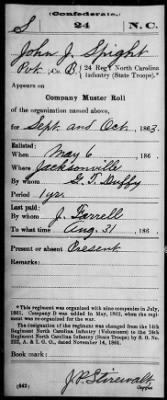 (Confederate.)
S 24 N.C.
John J. Spight
Pvt., Co. B, 24 Reg't North Carolina
Infantry (State Troops).*
Appears on
Company Muster Roll
of the organization named above,
for Sept. and Oct., 1863.
Enlisted:
When May 6, 186
Where Jacksonville
By whom G. T. Duffy
Period 1 yr.
Last paid:
By whom J. Ferrell
To what time Aug. 31, 186
Present or absent Present
Remarks:
*This regiment was organized with nine companies in July,
1861. Company D was added in May, 1862, when the regi-
ment was reorganized.
The designation of the regiment was changed from the 14th
Regiment North Carolina Infantry (Volunteers) to the 24th
Regiment North Carolina Infantry (State Troops) by S. O. No.
222, A. & I. G. O., dated November 14, 1861.
Book mark:
J. P. Stirewalt
(642) Copyist.